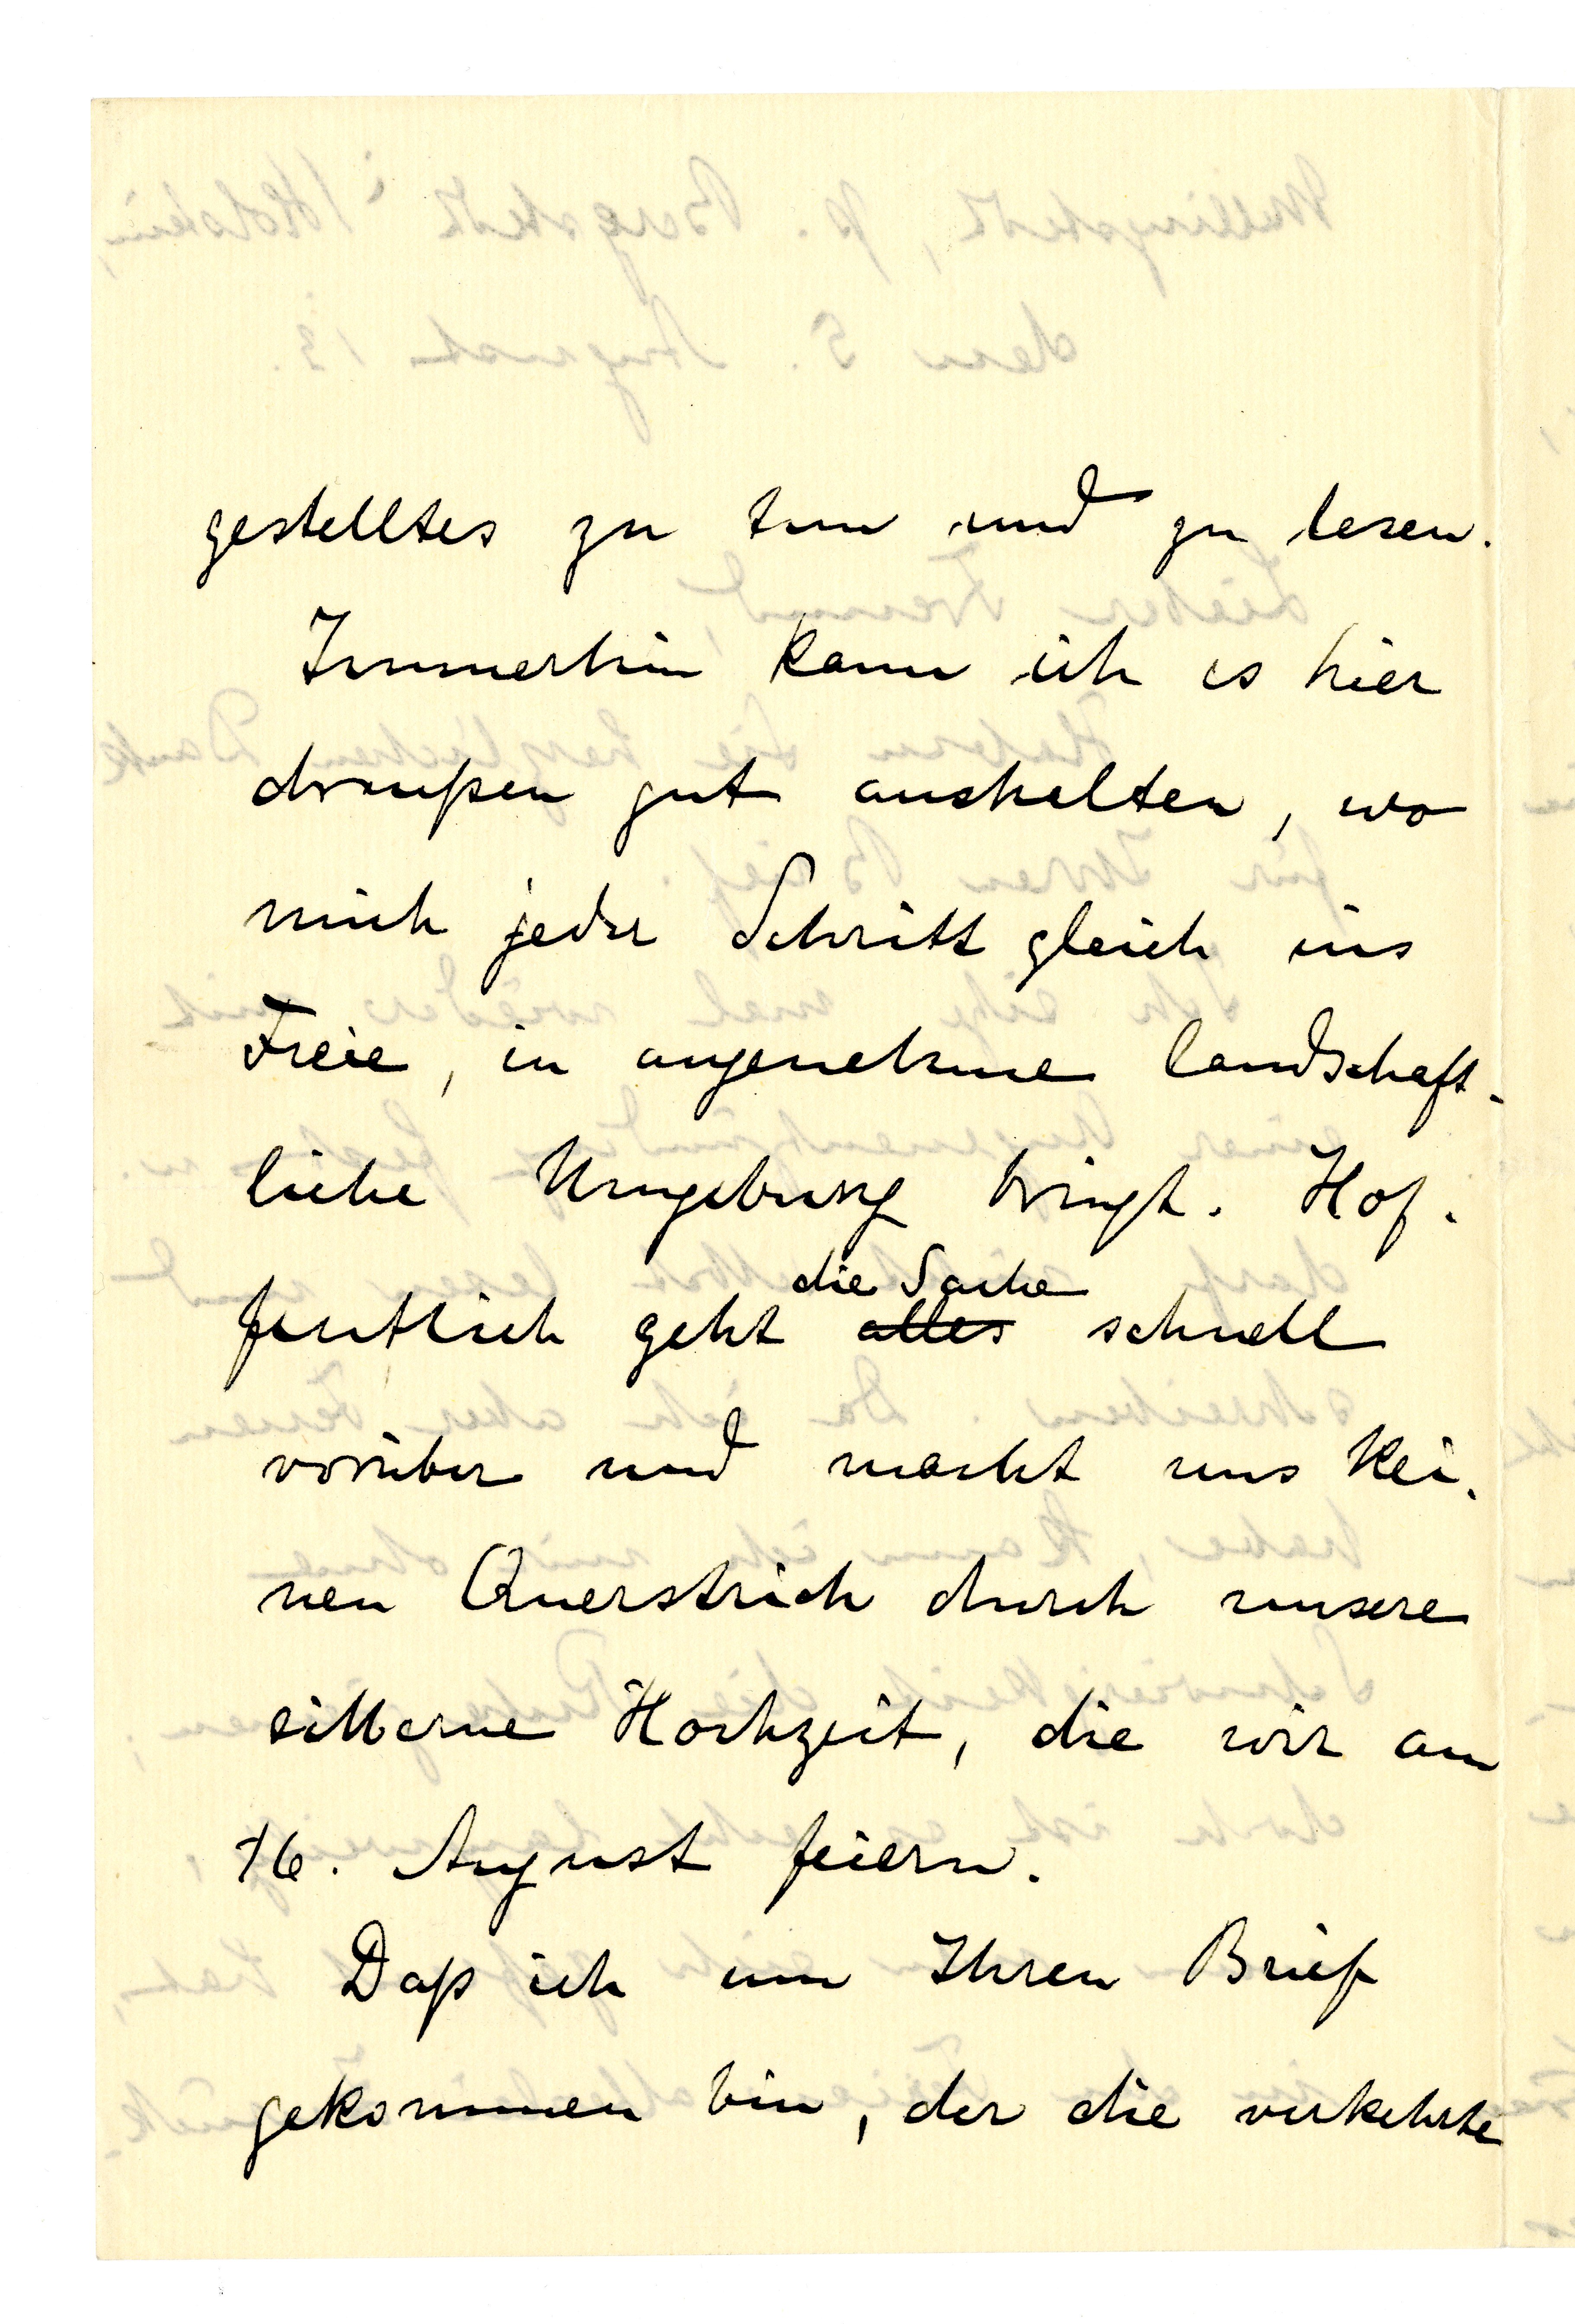 gestelltes zu tun und zu lesen.
Immerhin kann ich es hier
draußen gut aushalten, wo
mich jeder Schritt gleich ins
Freie, in angenehme landschaft-
liche Umgebung bringt. Hof-
fentlich geht alles schnell
die Sache
vorüber und macht uns kei-
nen Querstrich durch unsere
silberne Hochzeit, die wir am
16. August feiern.
Daß ich um Ihren Brief
gekommen bin, der die verkehrte